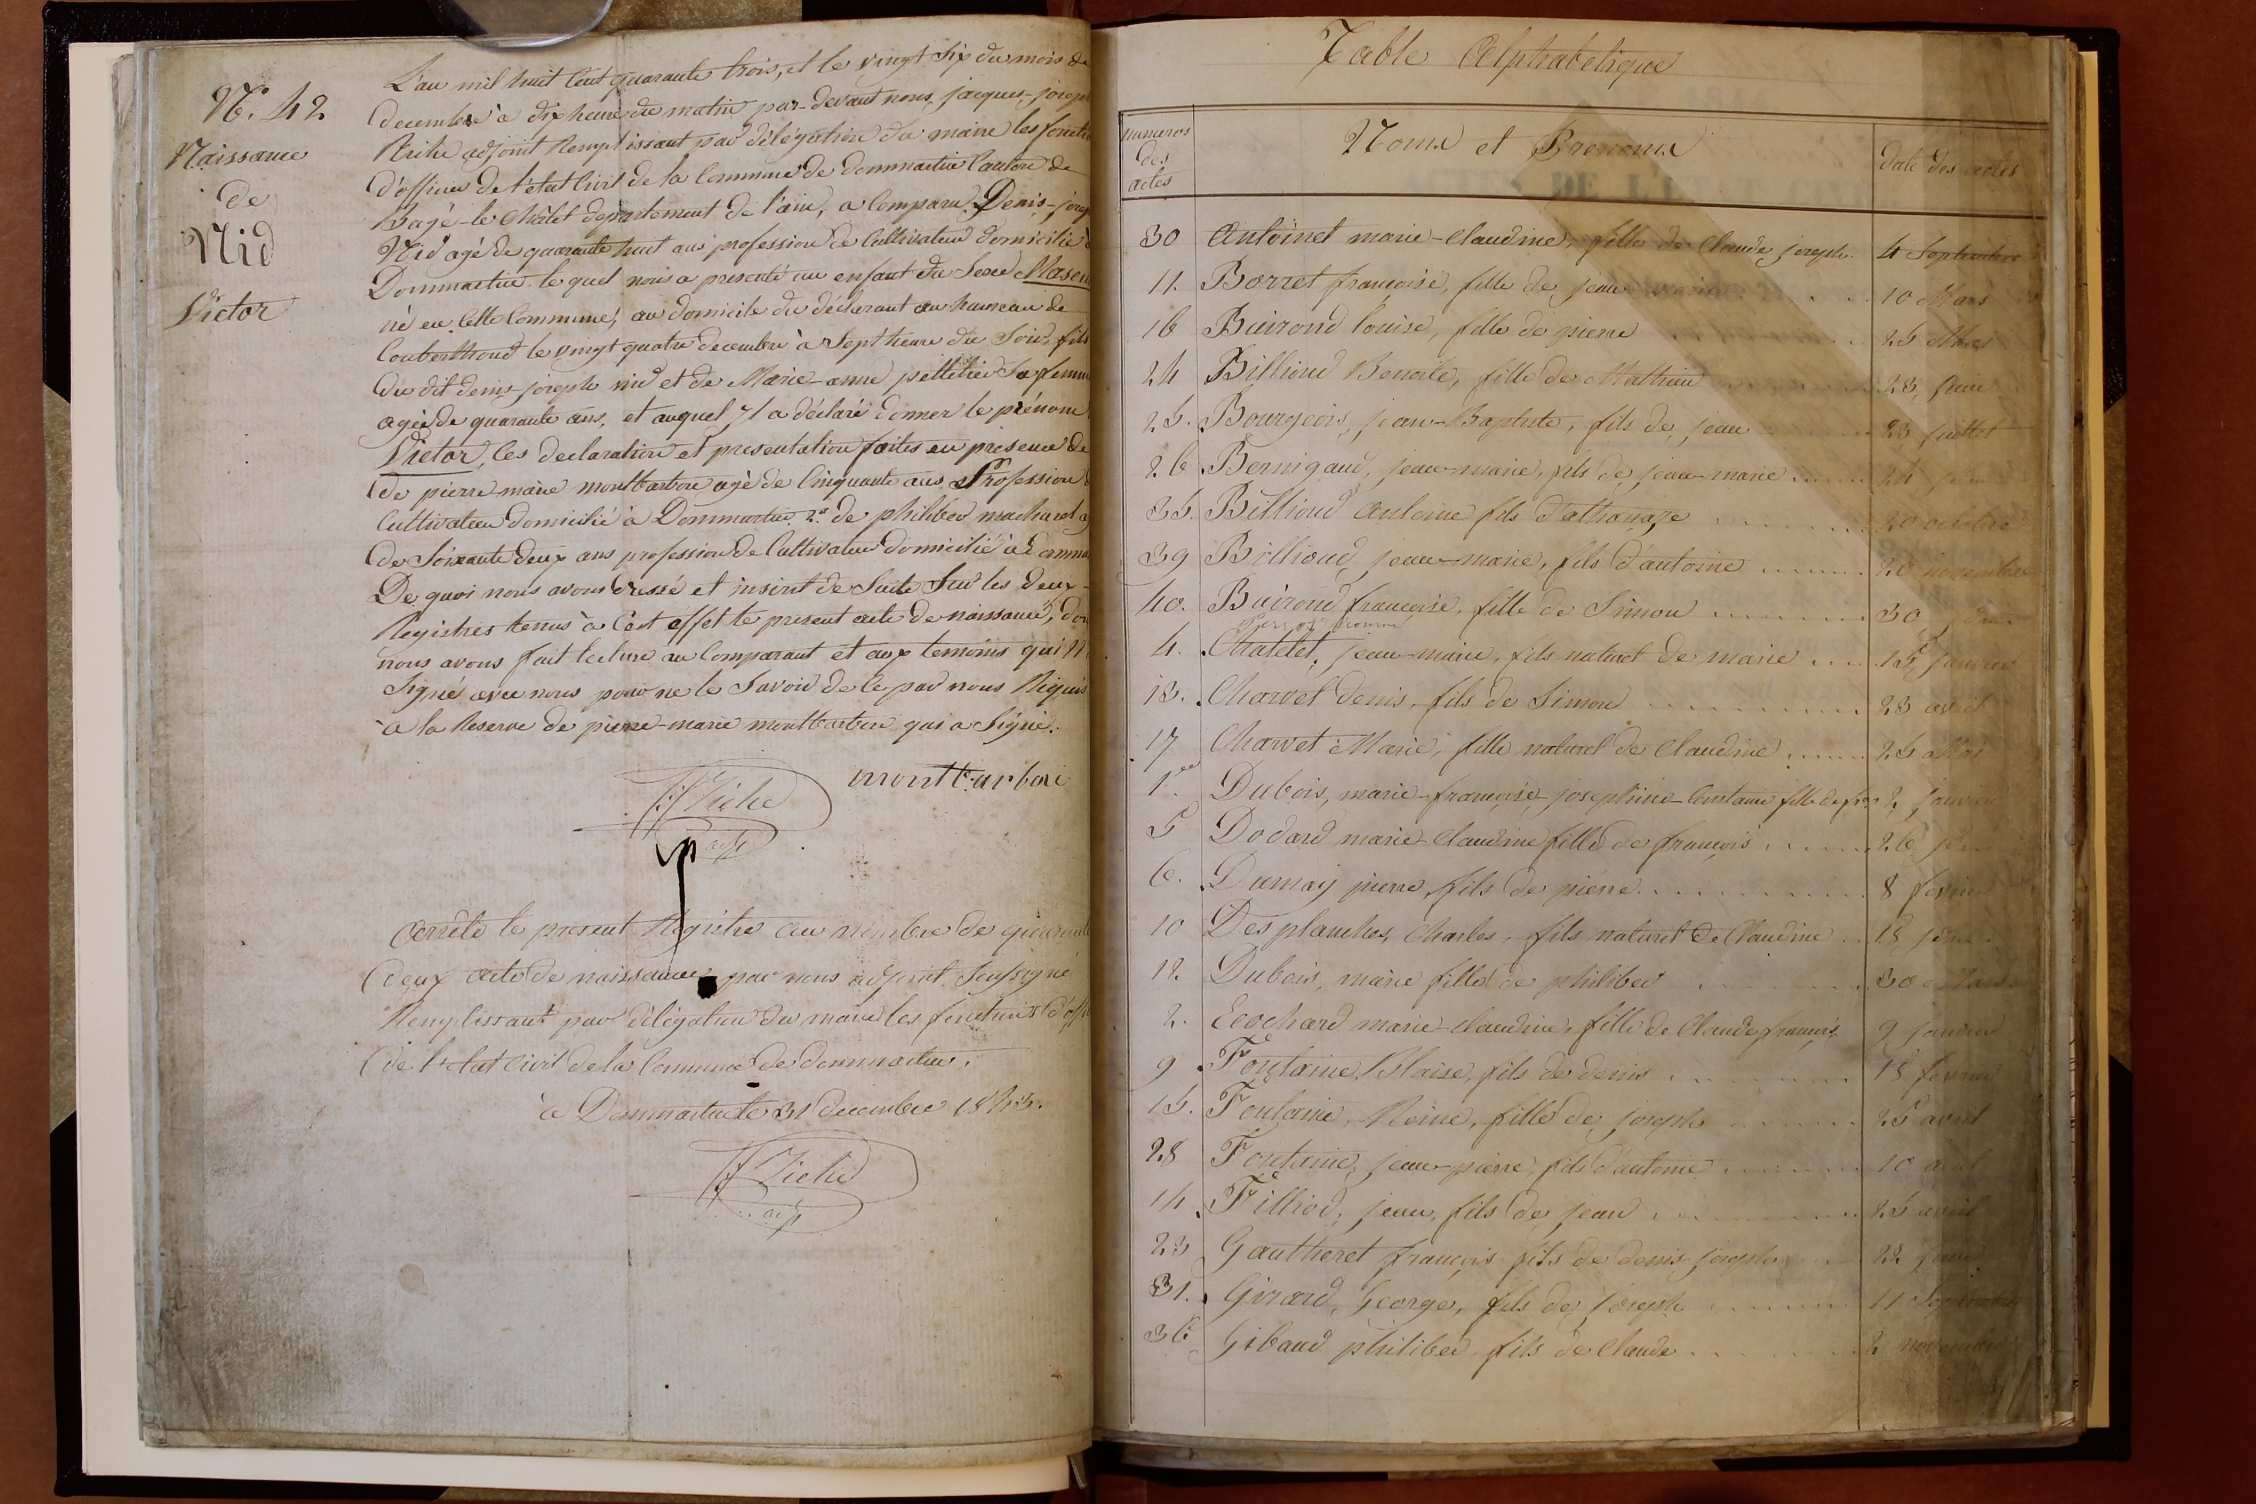 N.° 42
Naissance
de
Nid
Victor
L'an mil huit cent quarante trois, et le vingt six du mois de
decembre à dix heure du matin par-devant nous, jacques-joseph
adjoint Remplissant par délégation du maire les foncti
d'officier de l'état Civil de la Commune de dommartin Canton de
Bagé-le-Châtel departement de l'ain, a Comparu Denis-josep
Nid agé de quarante huit ans profession de Cultivateur domicilié à
Dommartin lequel nous a presenté un enfant du Sexe Mascu
né en Cette Commune, au domicile du déclarant au hameau de
le vingt quatre decembre à Sept heure du Soir, fils
du dit denis-joseph nid et de Marie-anne pelletier Sa femme
agée de quarante ans, et auquel il a déclaré donner le prénom
Victor, les declaration et presentation faites en présence de
de pierre-marie montbarbon agé de Cinquante ans Profession d
Cultivateur domicilié à Dommartin 2.° de philiber macharet ag
de Soixante deux ans profession de Cultivateur domicilié à Domma
De quoi nous avons dressé et inscrit de Suite Sur les deux
Registres tenus à Cet effet le present acte de naissance, don
nous avons fait lecture au Comparant et aux temoins qui n'
Signé avec nous pour ne le Savoir de le par nous Réquis
à la Reserve de pierre-marie montbarbon qui a Signé.
montbarbon
adj
arrêté le present Régistre au nombre de quarante
deux acte de naissance par nous adjoint Soussigné
Remplissant par délégation du maire les fonctions d'offi
de l'état Civil de la Commune de dommartin.
à Dommartin le 31 decembre 1843.
adj
Table Alphabetique
numeros des actes Noms et Prenoms date des actes
30 Antoinet marie-Claudine, fille de Claude joseph. 4 Septembre
11. Borret françoise, fille de jean 10 Mars
16 Buirond louise, fille de pierre 25 Mai
24 Billioud Benoite, fille de Mathieu 28 juin
25. Bourgeois, jean-Baptiste, fils de jean 23 juillet
26 Bernigaud, jean-marie, fils de jean-marie 24
35. Billioud antoine fils d'athanaze 20 octobre
39 Billioud, jean-marie, fils d'antoine 26 novembre
40. Buirond françoise, fille de Simon 30
4. Chatelet, jean-marie, fils naturel de marie 15 janvier
13. Charvet denis, fils de Simon 23 avril
17 Charvet Marie, fille naturel de Claudine 25 Mai
1.er Dubois, marie-françoise-josephine-Constance fille de 2 janvier
5 Dodard marie-Claudine fille de françois 26
6. Dumay pierre, fils de pierre 8 fevrier
10 Desplanches, Charles, fils naturel de Claudine 18
12. Dubois, marie fille de philiber 30 Mars
2. Ecochard marie-claudine, fille de Claude françois 9 janvier
9 Fontaine, Blaise, fils de denis 18 fevrier
15. Fontaine, Reine, fille de joseph 25 avril
28 Fontaine, jean-pierre, fils d'antoine 10 aout
14 Filliod, jean, fils de jean 25 avril
23 Gautheret françois fils de denis-joseph 22 juin
31. Girard, George, fils de joseph 11 Septembre
36 Gibaud philiber, fils de Claude 2 novembre